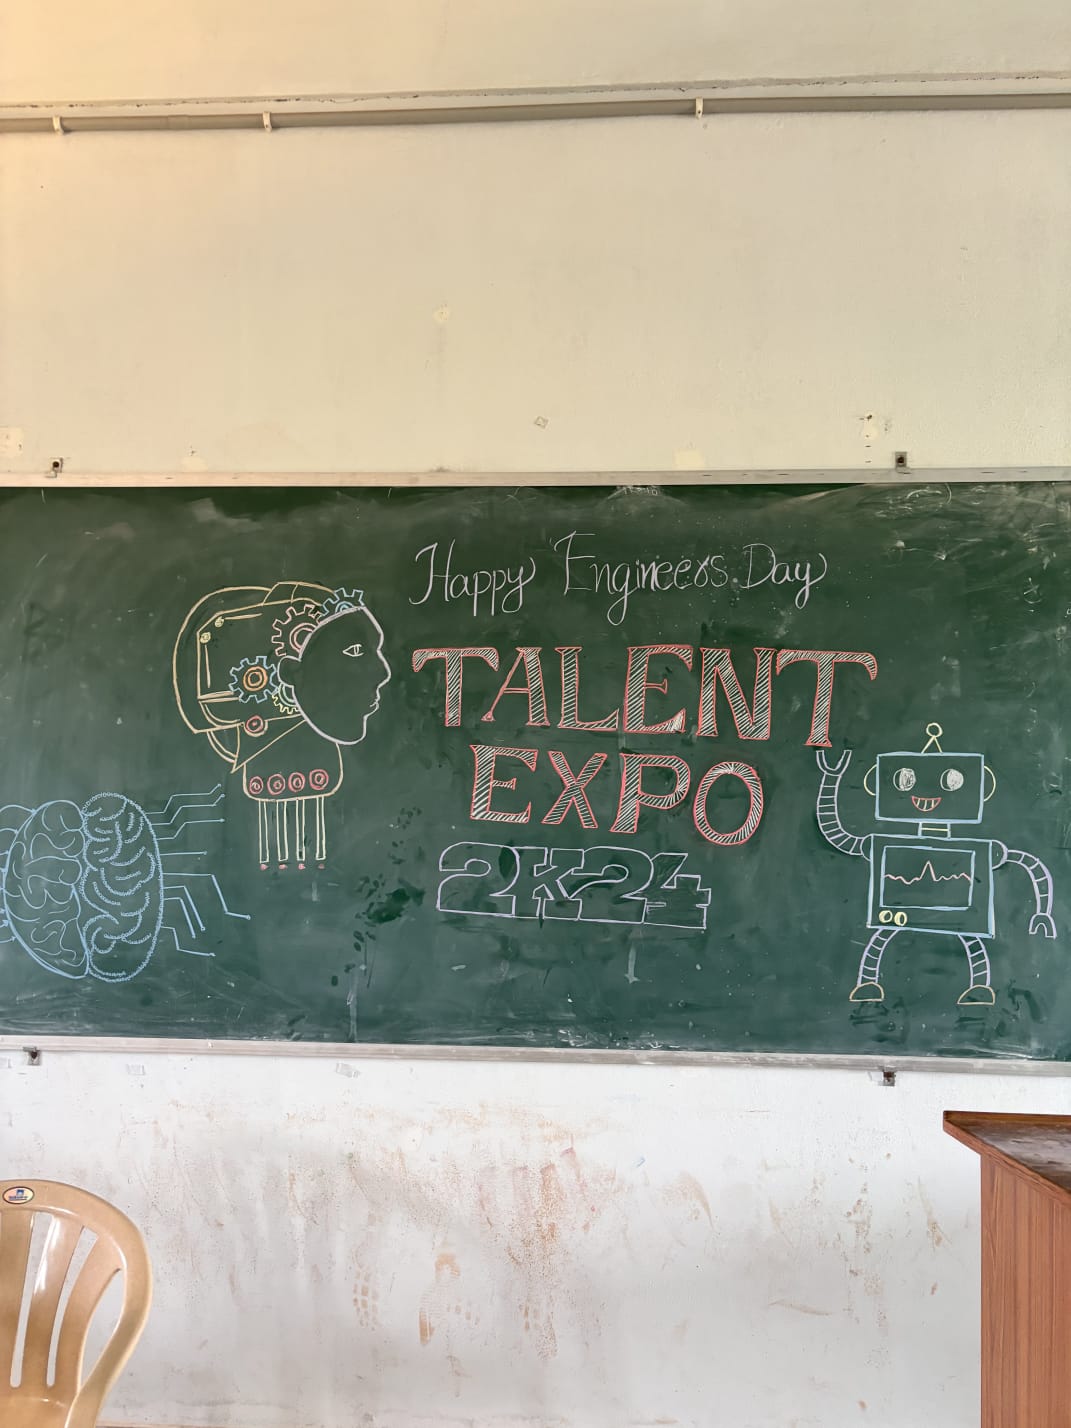 Happy Engineers Day
TALENT
EXPO
2K24